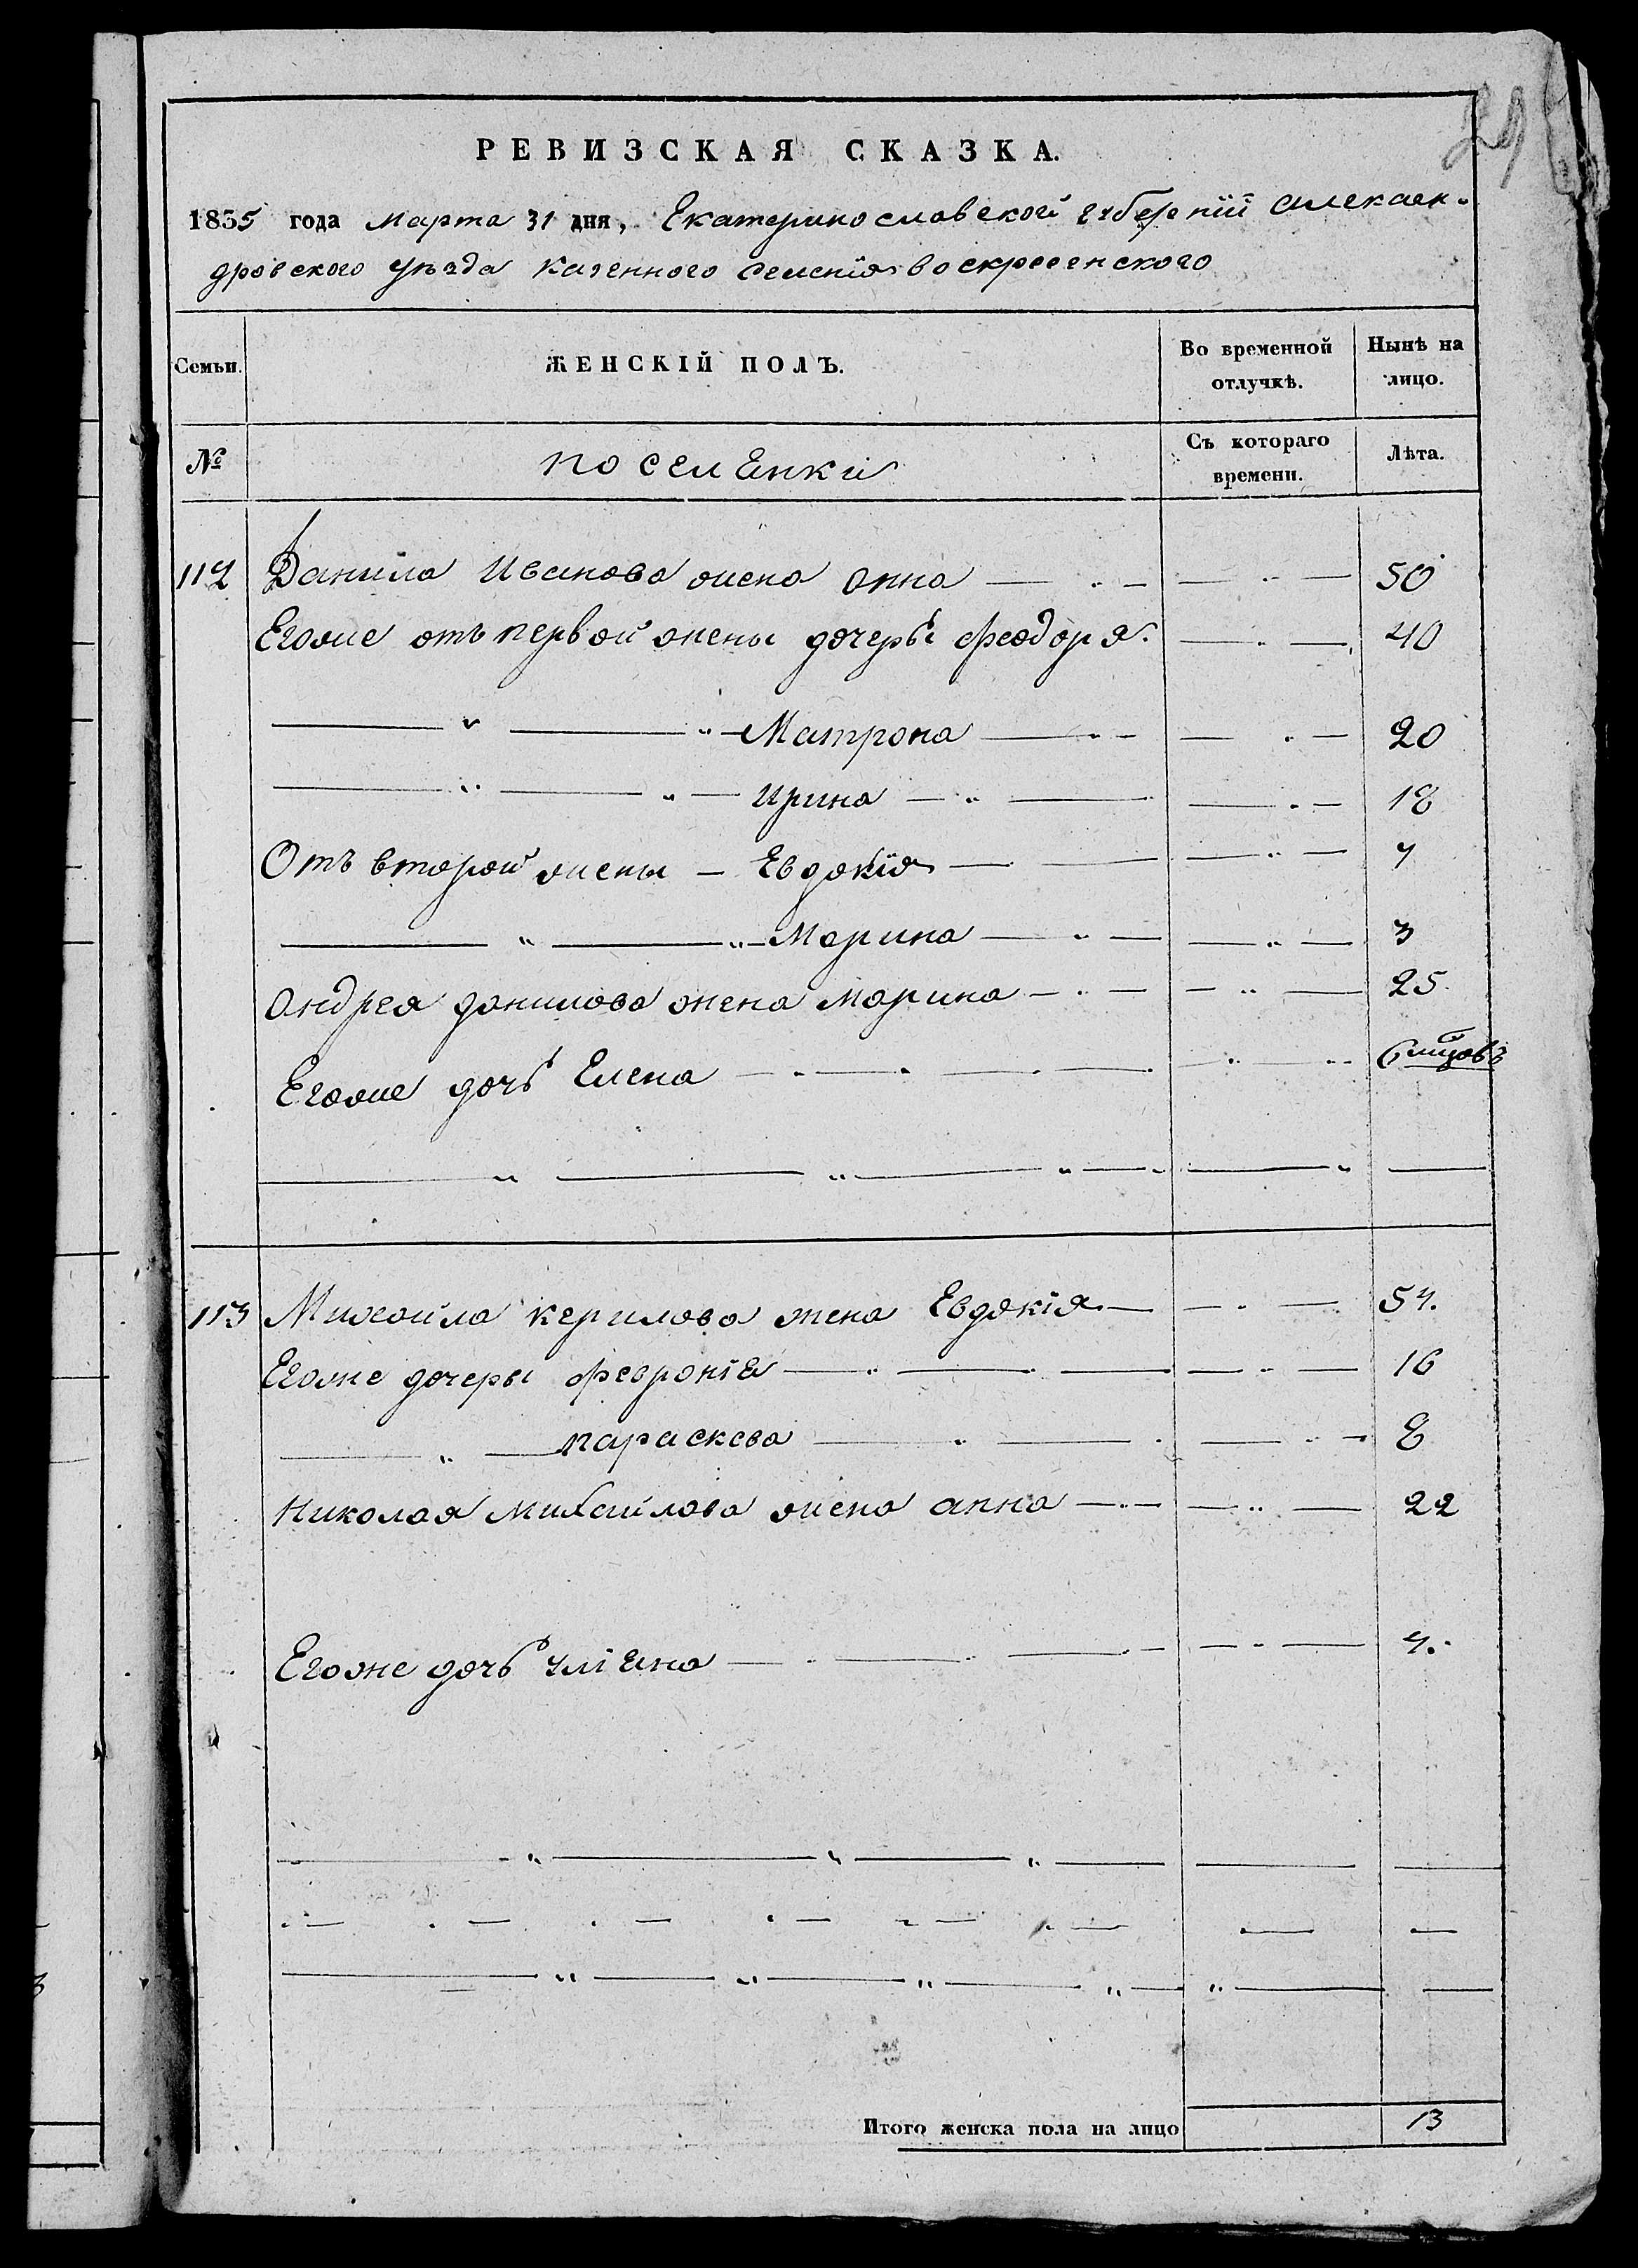 29
РЕВИЗСКАЯ СКАЗКА.
1835 года марта 31 дня, Екатеринославской губернiи алексан-
дровского уѣзда казенного селенiя воскресенского
Семьи. ЖЕНСКІЙ ПОЛЪ. Во временной отлучкѣ. Нынѣ на лицо.
№ поселянки Съ котораго времени. Лѣта.
112 Данила Иванова жена анна 50
Егоже отъ первой жены дочеры феодоря. 40
Матрона 20
ирина 18
Отъ второй жены Евдокiя 7
Марина 3
андрея данилова жена марина 25
Егоже дочь Елена 6 мцовъ
113 Михайла керилова жена Евдокiя 54.
Егоже дочеры феврония 16
параскева 8
николая михайлова жена анна 22
Егоже дочь улiяна 4.
Итого женска пола на лицо 13